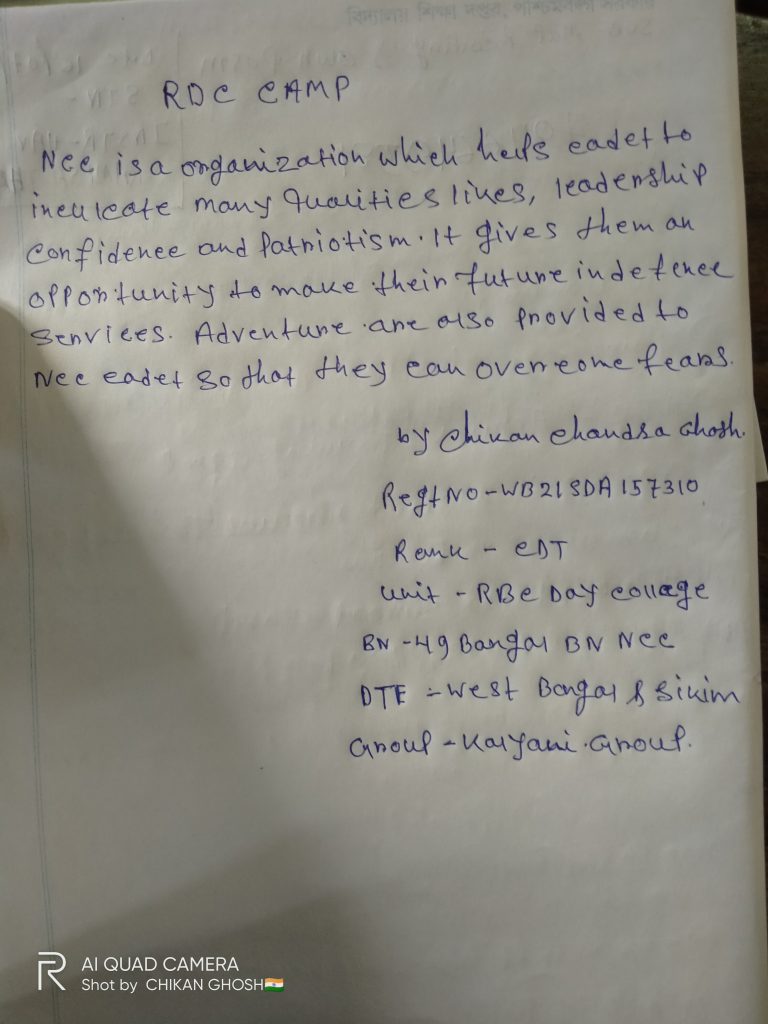 বিদ্যালয় শিক্ষা দপ্তর, পশ্চিমবঙ্গ সরকার
RDC CAMP
Ncc is a organization which helps cadet to
inculcate many qualities likes, leadership
confidence and Patriotism. It gives them an
opportunity to make their future in defence
services. Adventure are also provided to
Ncc cadet so that they can overcome fears.
by Chikan Chandra Ghosh.
Regt NO - WB21SDA157310
Rank - CDT
unit - RBC Day college
BN - 49 Bangal BN NCC
DTE - West Bangal & Sikim
Group - Kalyani Group.
AI QUAD CAMERA
Shot by CHIKAN GHOSH🇮🇳